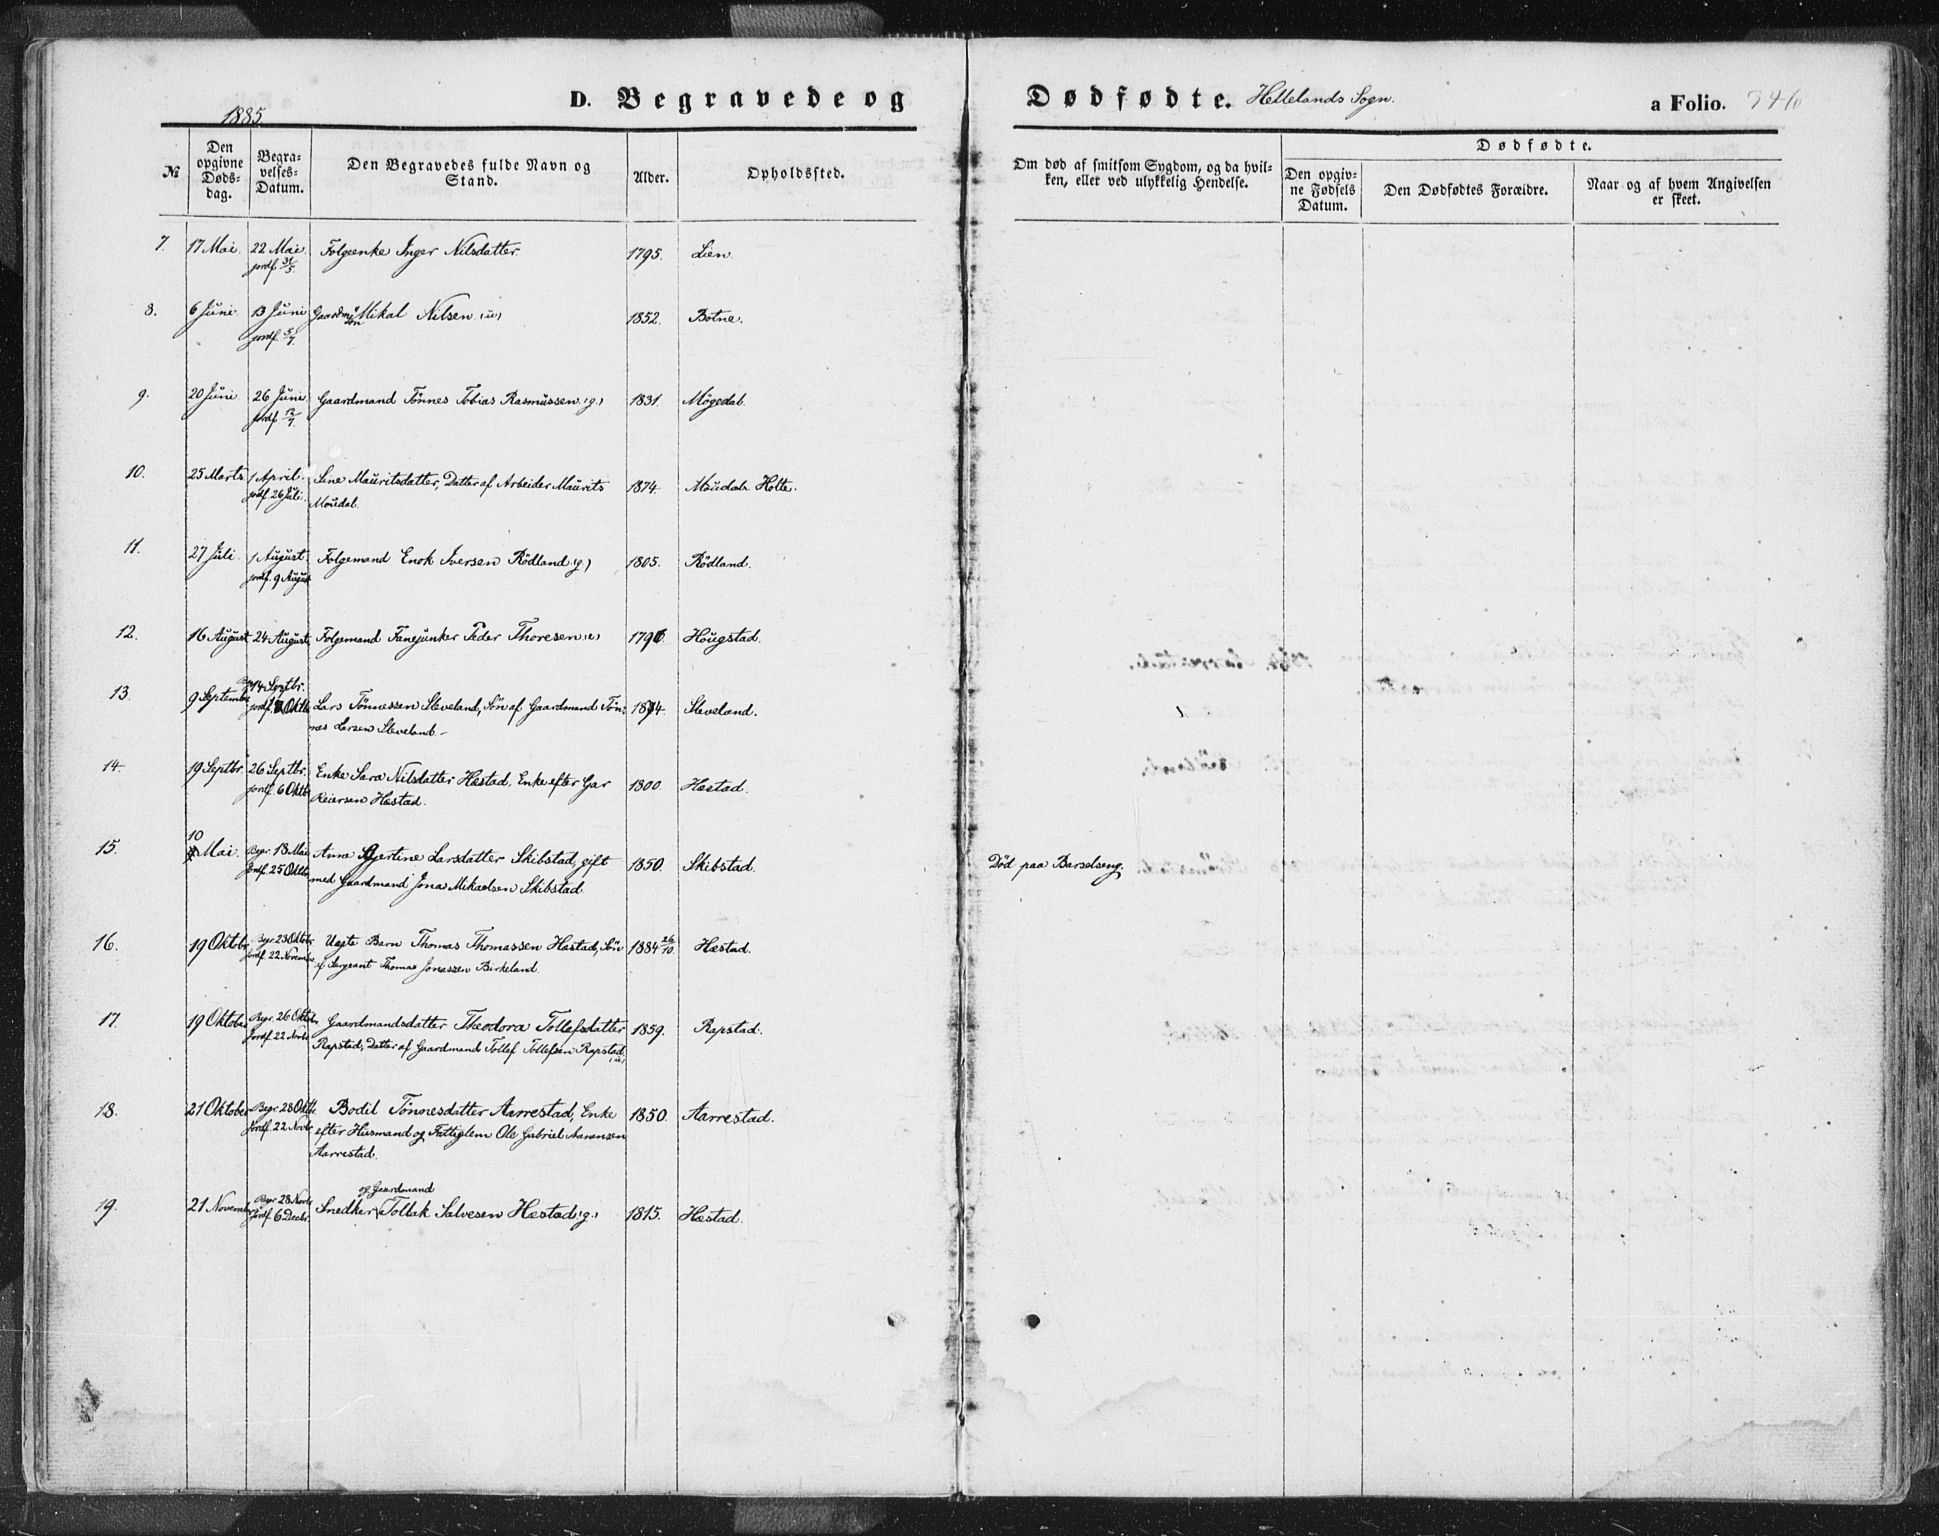 1885.
D. Begravede og Dødfødte. Hellelands Sogn. a Folio. 346
№ Den opgivne Døds-dag. Begra-velses-Datum. Den Begravedes fulde Navn og Stand. Alder. Opholdssted. Om død af smitsom Sygdom, og da hvil-ken, eller ved ulykkelig Hendelse. Dødfødte. Den opgiv-ne Fødsels Datum. Den Dødfødtes Forældre. Naar og af hvem Angivelsen er skeet.
7. 17 Mai. 22 Mai. Folgeenke Inger Nilsdatter. 1795. Lien.
jordf. 31/5.
8. 6 Juni. 13 Juni Gaardm. Mikal Nilsen (u) 1852. Botne.
jordf. 5/7.
9. 20 Juni. 26 Juni. Gaardmand Tönnes Tobias Rasmussen (g.) 1831. Mögedal.
jordf. 12/7.
10. 25 Marts 1 April. Sine Mauritsdatter, Datter af Arbeider Maurits 1874. Moudal. Holte.
jordf. 26 Juli. Moudal.
11. 27 Juli. 1 August. Folgemand Enok Iversen Rödland (g) 1805. Rödland.
jordf. 9 August
12. 16 August 24 August Folgemand Fanejunker Peder Thoresen (e) 1796. Hougstad.
13. 9 September 14 Septbr. Lars Tönnessen Sleveland, Sön af Gaardmand Tön- 1874. Sleveland.
jordf. Oktbr nes Larsen Sleveland.
14. 19 Septbr. 26 Septbr. Enke Sara Nilsdatter Hæstad, Enke efter Gar 1800. Hæstad.
jordf. 6 Oktbr Reiersen Hæstad.
15. 10 Mai. Begr. 18 Mai Anna Gjertine Larsdatter Skibstad, gift 1850. Skibstad. Död paa Barselseng.
Jordf. 25 Oktbr med Gaardmand Jonas Mikaelsen Skibstad.
16. 19 Oktbr Begr. 23 Oktbr. Uægte Barn Thomas Thomassen Hæstad, Sön 1884 26/10. Hæstad.
jordf. 22 November af Sergeant Thomas Jonassen Birkeland.
17. 19 Oktober Begr. 26 Oktbr. Gaardmandsdatter Theodora Tollefsdatter 1859. Rapstad.
Jordf. 22 Novbr Rapstad, Datter af Gaardmand Tollef Tollefsen Rapstad (u)
18. 21 Oktober Begr. 28 Oktbr. Bodil Tönnesdatter Aarrestad, Enke 1850. Aarrestad.
Jordf. 22 Novbr. efter Husmand og Fattiglem Ole Gabriel Aanensen
Aarrestad.
og Gaardmand
19. 21 November Begr. 28 Novbr Snedker Tollak Salvesen Hæstad (g.) 1815. Hæstad.
Jordf. 6 Decbr.